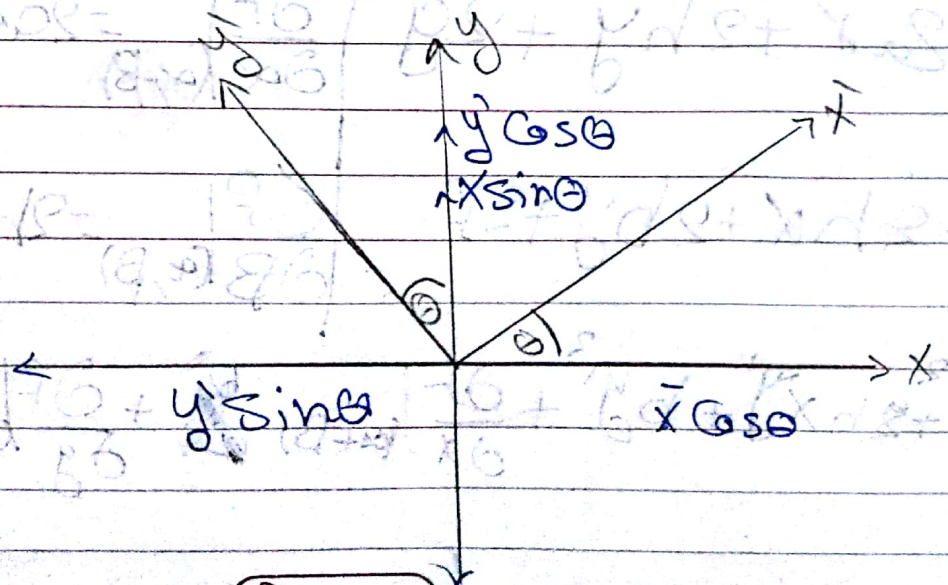 ȳ y
x̄
y' Cosθ
x sinθ
θ θ
x
y' Sinθ x̄ Cosθ